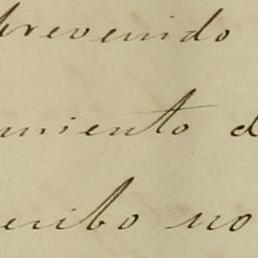 prevenido
miento d
cribo no